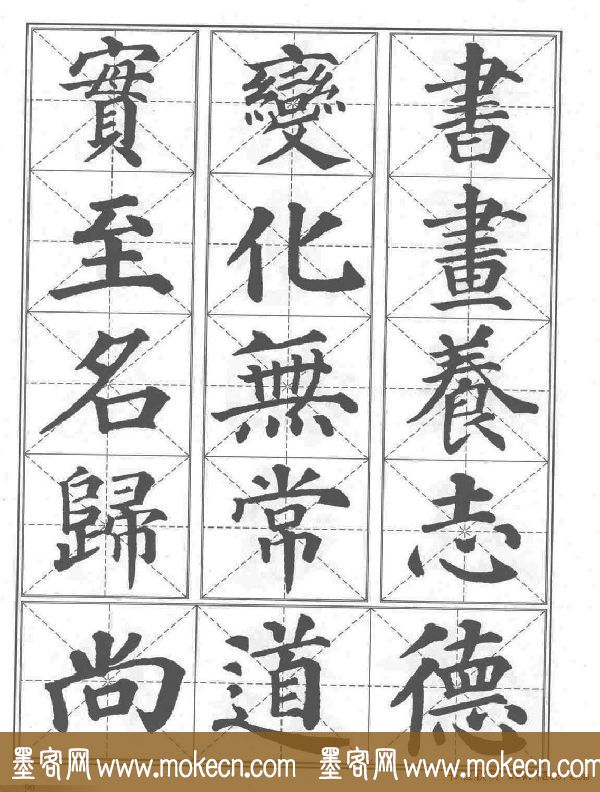 書畫養志
變化無常
實至名歸
德道尚
墨客网 www.mokecn.com 墨客网 www.mokecn.com